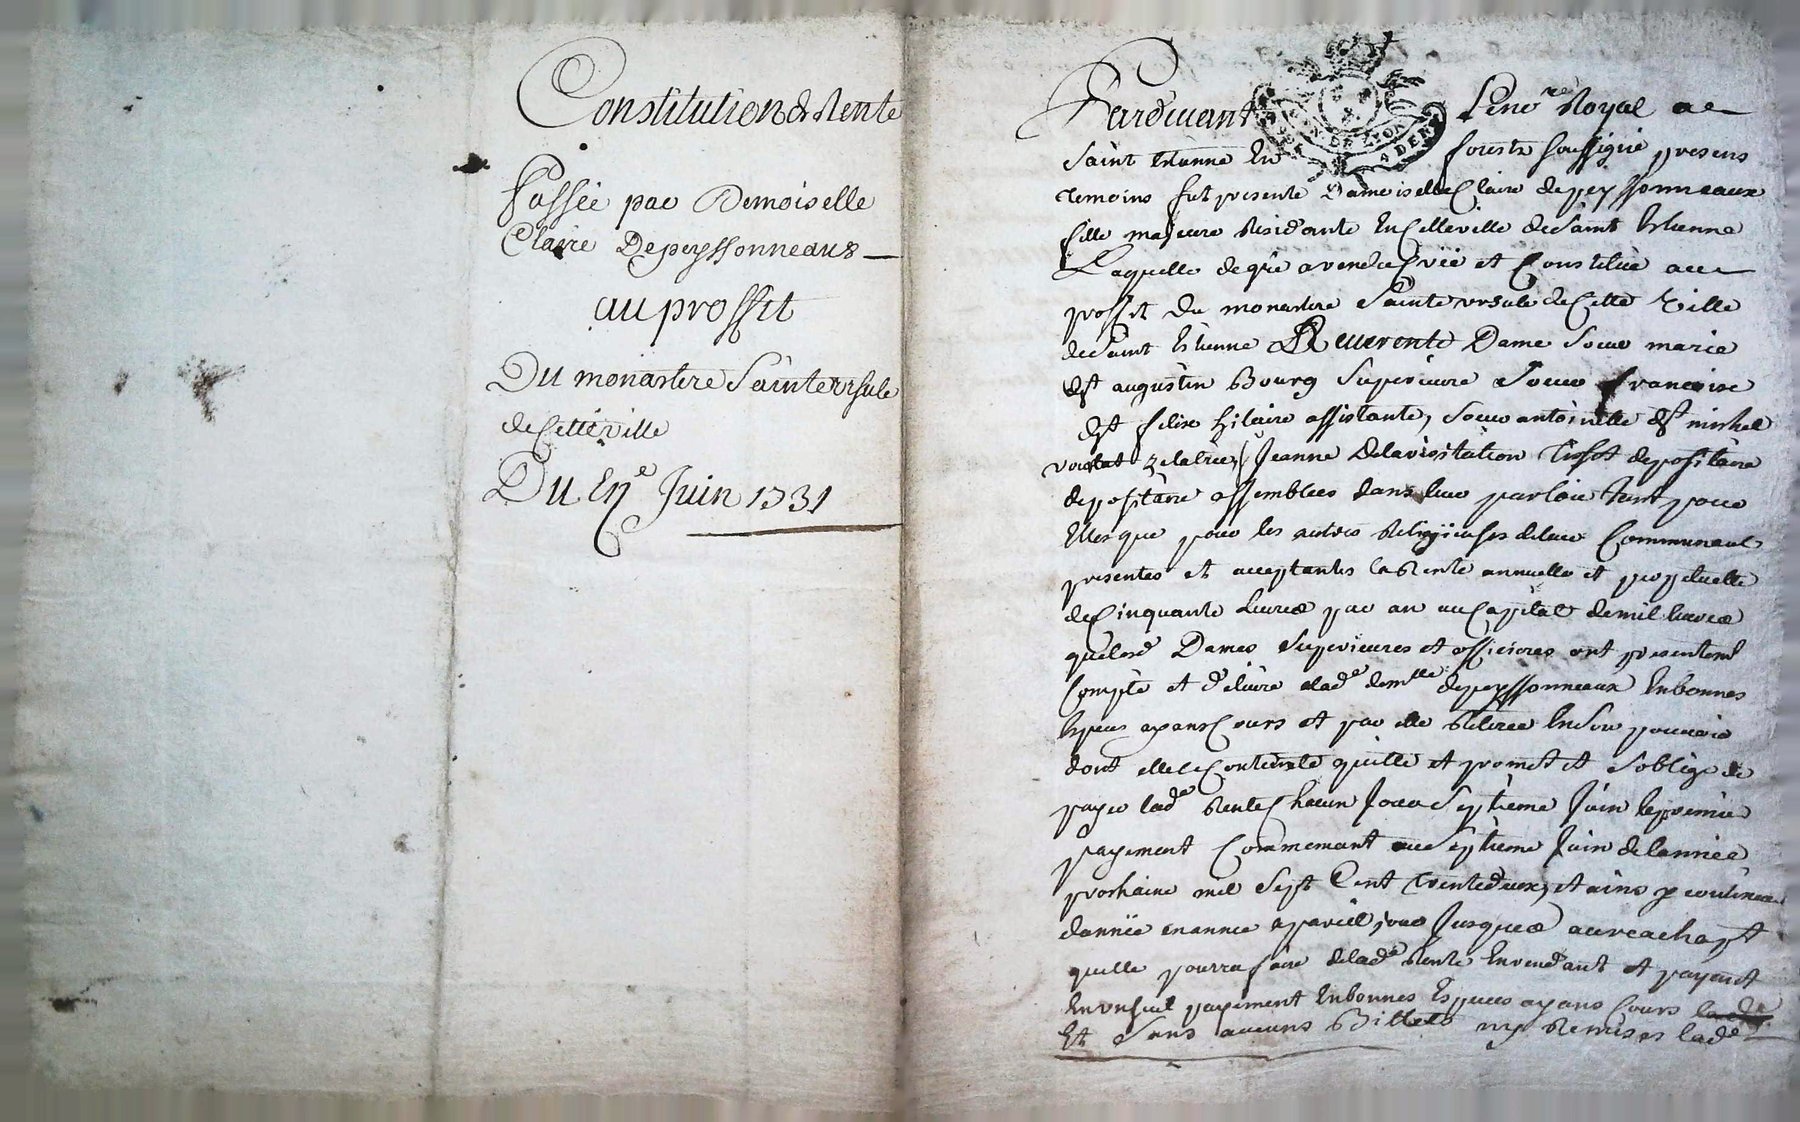 Constitution de Rente
Passée par Demoiselle
Claire Depeyssonneaux
au proffit
Du monastere Sainte ursule
de Cette ville
Du Juin 1731
Pardevant Le no.re Royal de
Saint Etienne En forestz soussigné presens
temoins fut presente Damoiselle Claire depeyssonneaux
fille majeure Residante En Cette ville de Saint Etienne
Laquelle de gré a vendu Crée et Constitué au
proffit du monastere Sainte ursule de Cette Ville
de Saint Etienne Reverente Dame Soeur marie
de St augustin Bourg Superieure Soeur francoise
de St felix hilaire assistante, Soeur antoinette de St michel
zelatrice, Jeanne Delavisitation Tissot depositaire
depositaire assemblées dans leur parloir tant pour
Elles que pour les autres Religieuses de leur Communauté
presentes et acceptantes la Rente annuelle et perpetuelle
de Cinquante Livres par an au Capital de mil livres
que lesd Dames Superieures et officieres ont presentemt
Compté et delivré a lad.e dem.lle depeyssonneaux En bonnes
Especes ayans Cours et par elle Retirée En Son pouvoir
dont elle se Contente quitte et promet et s'oblige de
payer lad.e Rente Chacun Jour Septieme Juin le premier
payement Commencant au Septieme Juin de l'année
prochaine mil Sept Cent trente deux, et ainsi continuer
dannée en année a pareil jour Jusques au reachapt
quelle pourra faire de lad.e Rente En rendant et payant
En un seul payement En bonnes Especes ayans Cours lad.e
Et Sans aucuns Billets ny Remises lad.e